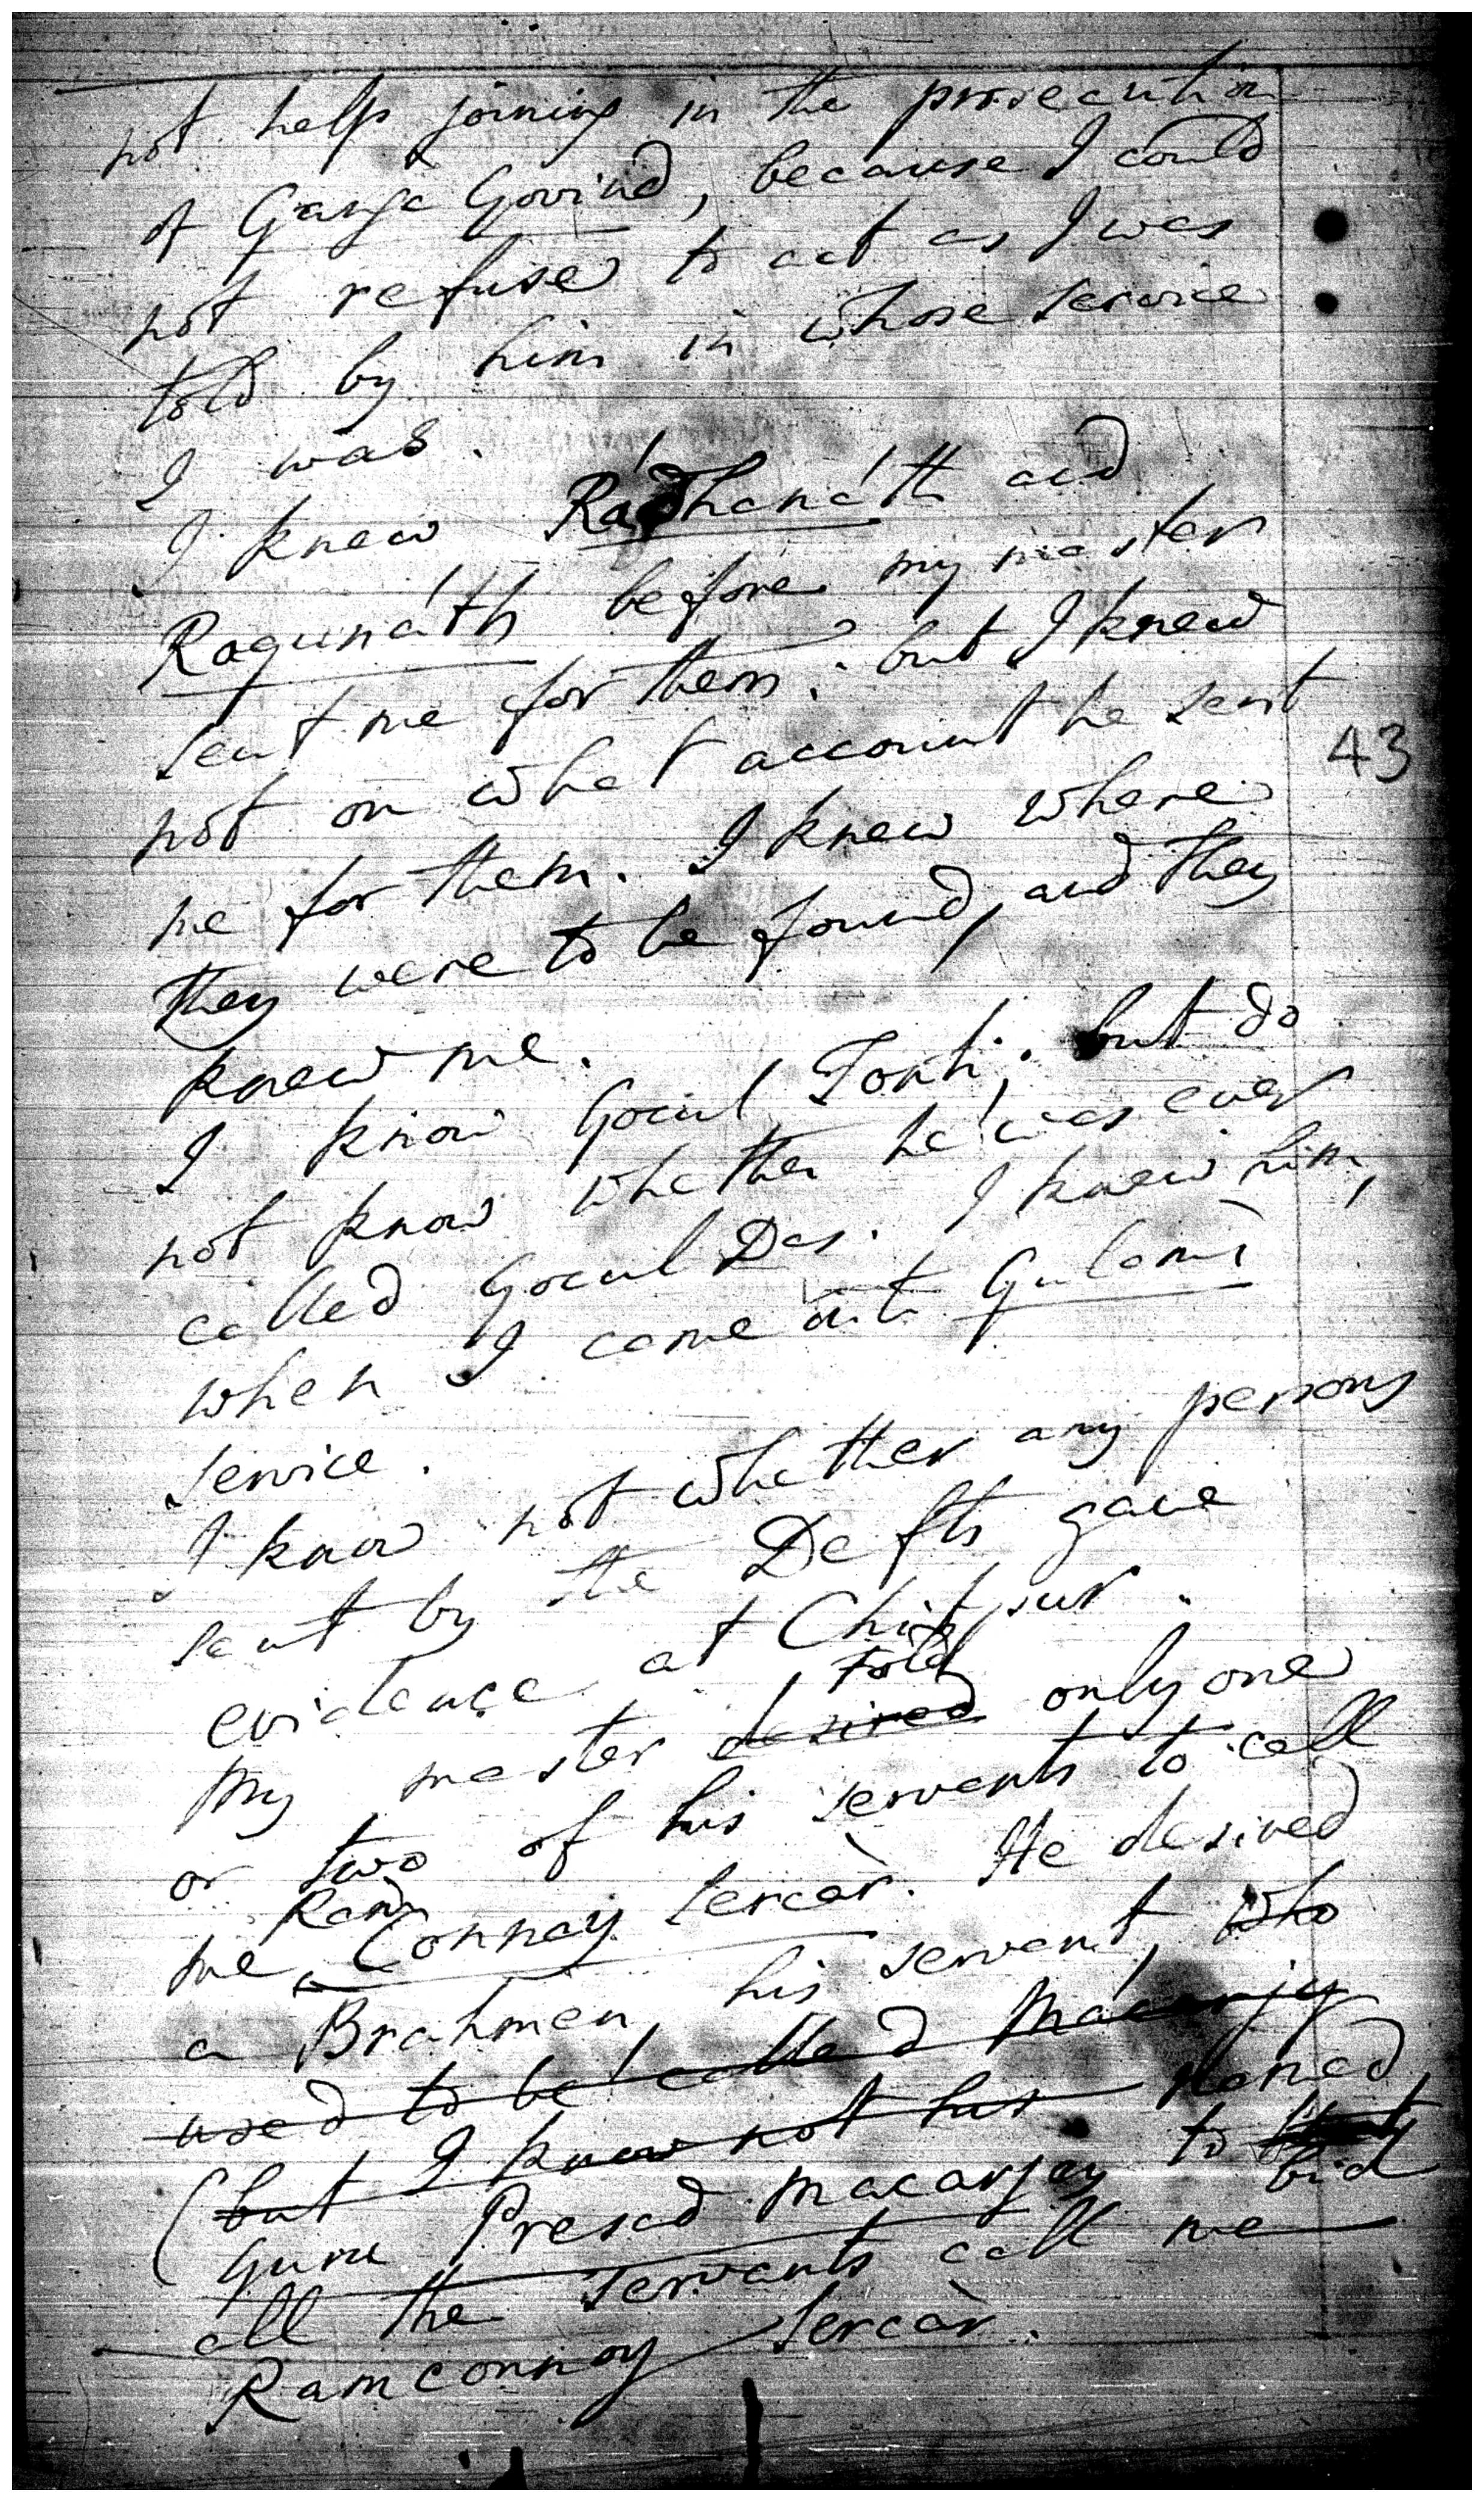 not help joining in the prosecution
of Ganga Govind, because I could
not refuse to act as I was
told by him in whose service
I was.
I knew Rádhanáth and
Ragunáth before my master
sent me for them; but I knew
not on what account he sent
me for them. I knew where
they were to be found, and they
knew me.
I know Gocul; but do
not know whether he was ever
called Gocul Das. I knew him,
when I came into Gulami
service.
I know not whether any persons
sent by the Defts gave
evidence at Chitpur.
told
My master desired only one
or two of his servants to call
Ram
me Connay Sercàr. He desired
a Brahmen, his servant, who
used to be called Macarjy
(but I know not his named
Guru Presad Macarjey to
bid
all the servants call me
Ramconnoy Sercàr.
43